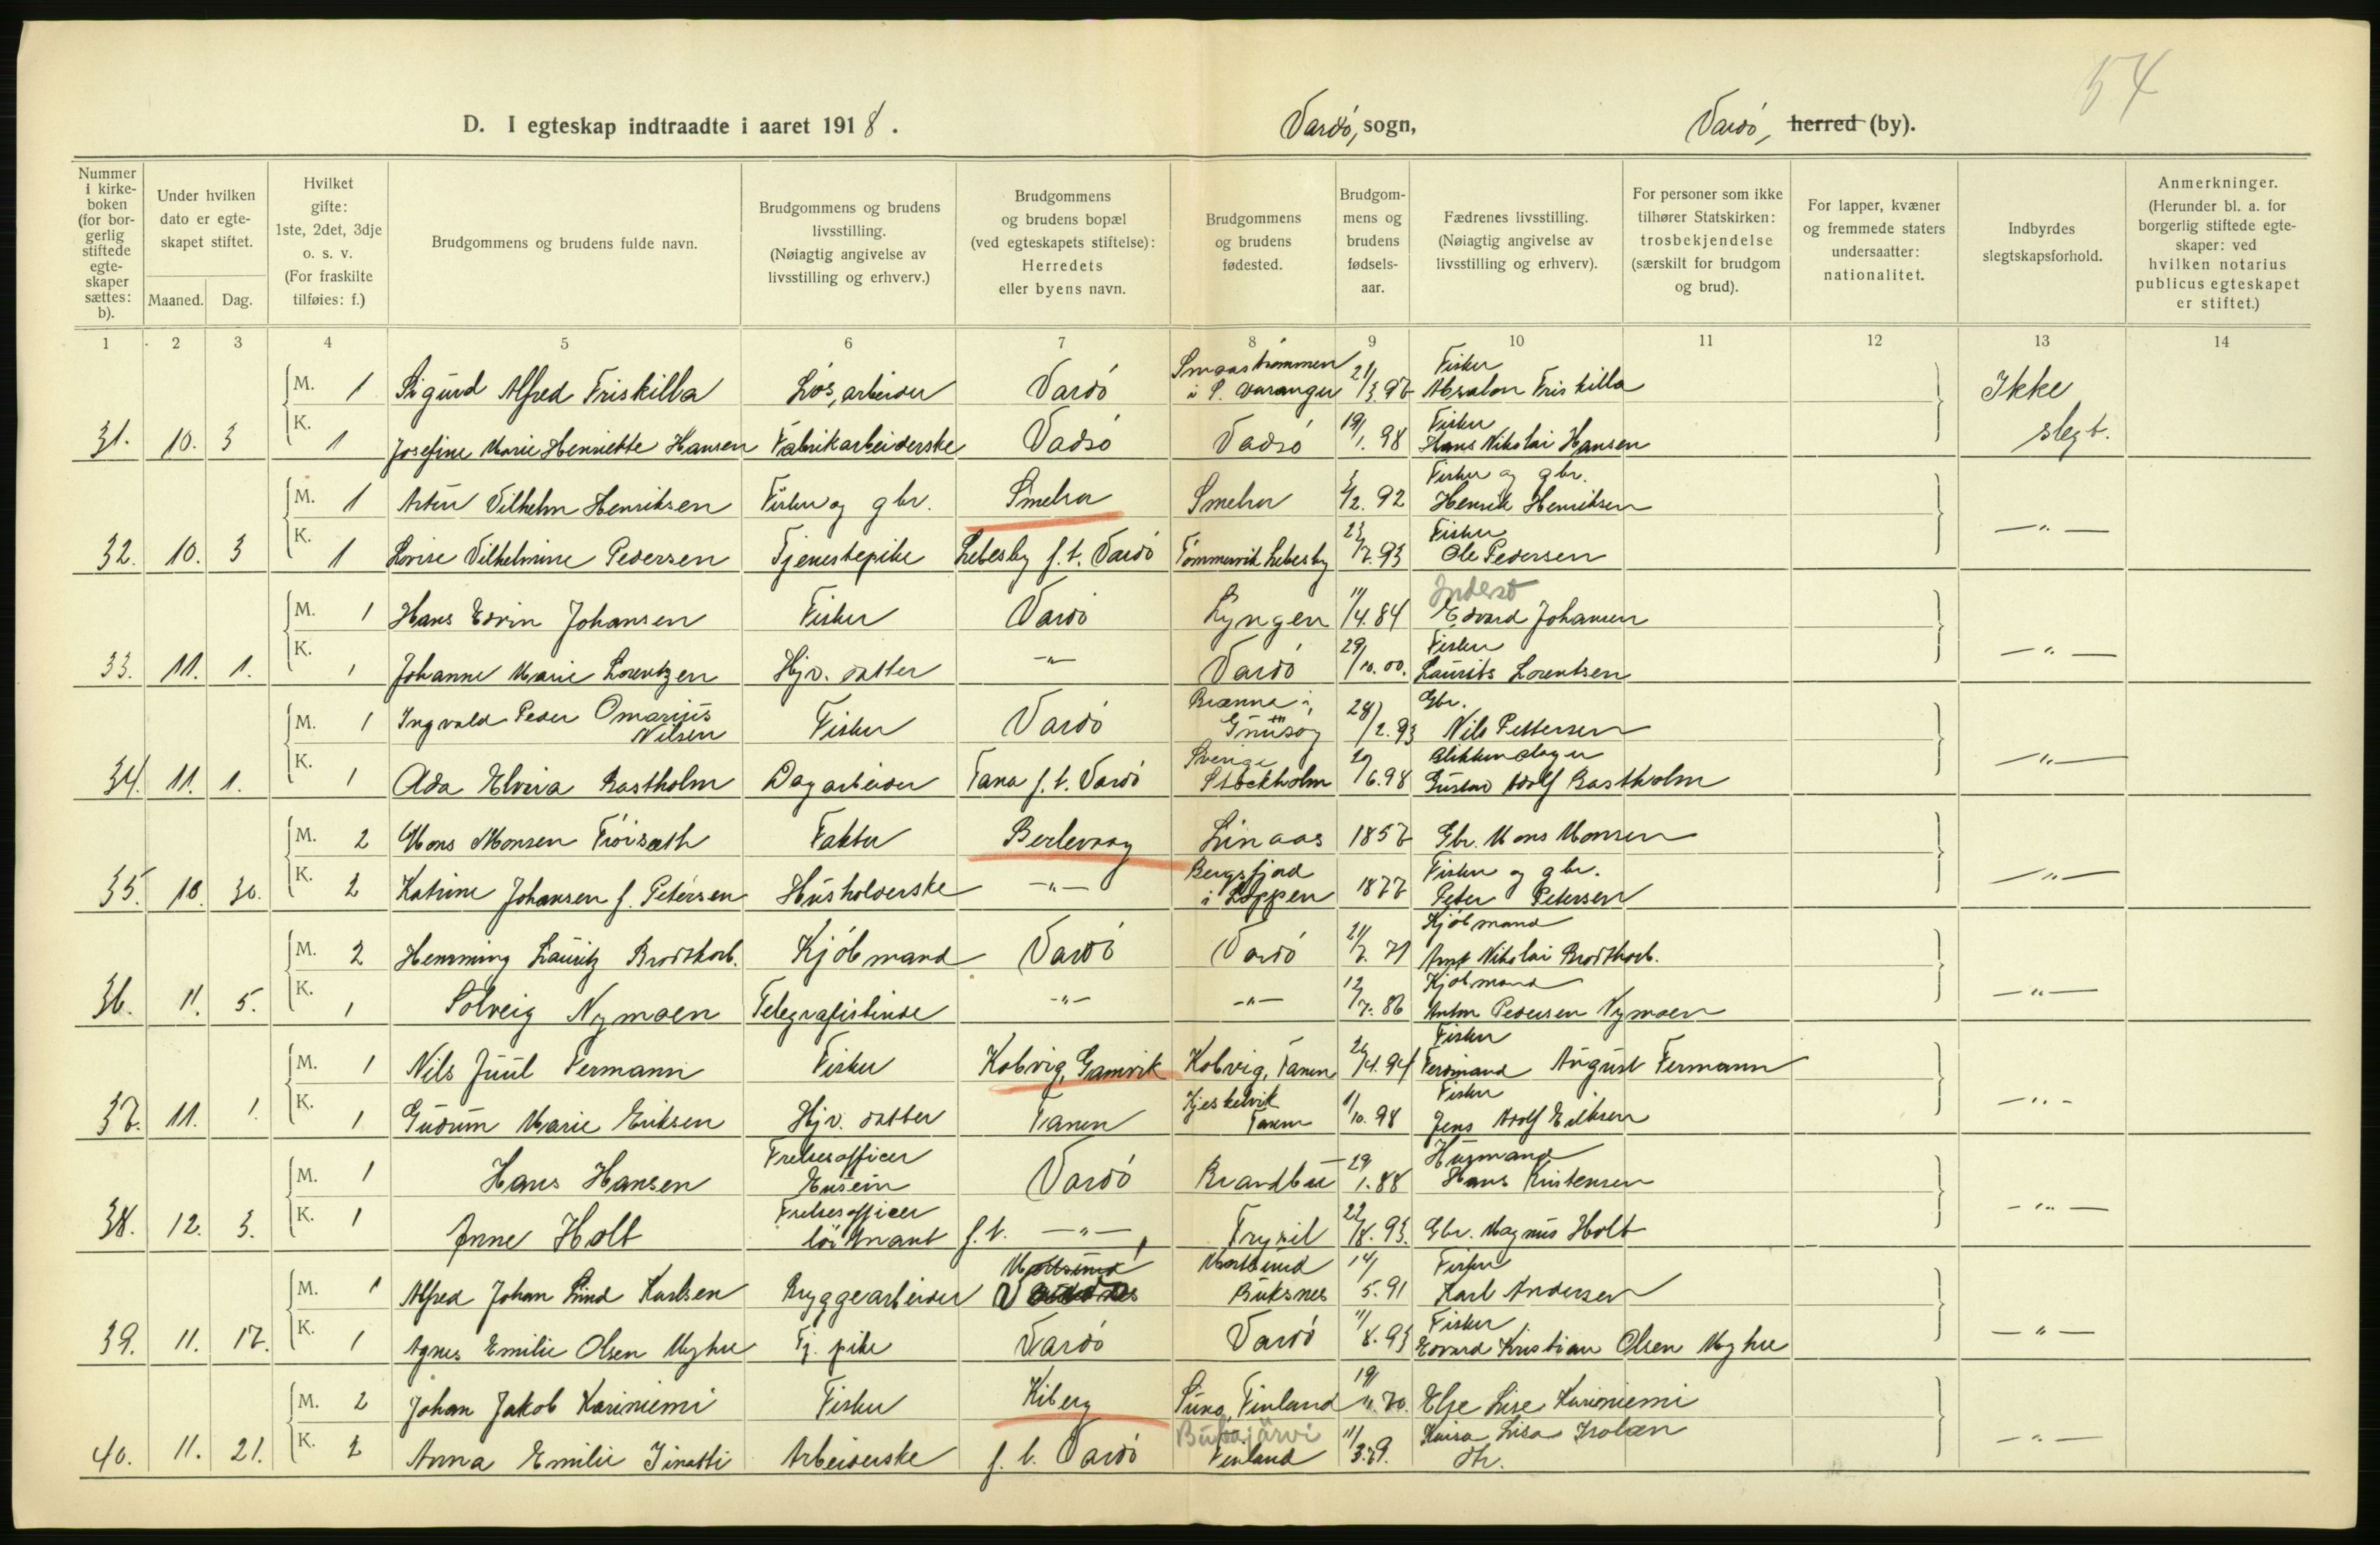 54
D. I egteskap indtraadte i aaret 1918.
Vardö, sogn,
Vardö, herred (by).
Nummer i kirke-boken (for bor-gerlig stiftede egte-skaper sættes: b).
Under hvilken dato er egte-skapet stiftet.
Maaned. Dag.
Hvilket gifte: 1ste, 2det, 3dje o. s. v. (For fraskilte tilføies: f.)
Brudgommens og brudens fulde navn.
Brudgommens og brudens livsstilling. (Nøiagtig angivelse av livsstilling og erhverv.)
Brudgommens og brudens bopæl (ved egteskapets stiftelse): Herredets eller byens navn.
Brudgommens og brudens fødested.
Brudgom-mens og brudens fødsels-aar.
Fædrenes livsstilling. (Nøiagtig angivelse av livsstilling og erhverv).
For personer som ikke tilhører Statskirken: trosbekjendelse (særskilt for brudgom og brud).
For lapper, kvæner og fremmede staters undersaatter: nationalitet.
Indbyrdes slegtskapsforhold.
Anmerkninger. (Herunder bl. a. for borgerlig stiftede egte-skaper: ved hvilken notarius publicus egteskapet er stiftet.)
1 2 3 4 5 6 7 8 9 10 11 12 13 14
M. 1 Sigurd Alfred Friskilla Løs, arbeider Vardö Smaastrømmen i S. Varanger 21/3. 97 Fisker Absalon Friskilla Ikke
31. 10. 3 K. 1 Josefine Marie Henriette Hansen Fabrikarbeiderske Vadsö Vadsö 19/1. 98 Fisker Hans Nikolai Hansen slegt.
M. 1 Artur Vilhelm Henriksen Fisker og gbr. Smelror Smelror 3/2. 92 Fisker og gbr. Henrik Henriksen
32. 10. 3 K. 1 Lovise Vilhelmine Pedersen Tjenestepike Lebesby f. t. Vardö Tömmervik Lebesby 23/7. 93 Fisker Ole Pedersen —"—
M. 1 Hans Edvin Johansen Fisker Vardö Lyngen 11/4. 84 Inderst Edvard Johansen
33. 11. 1. K. 1 Johanne Marie Lorentzen Hjv. datter —"— Vardö 29/10. 00. Fisker Laurits Lorentsen —"—
M. 1 Ingvald Peder Omarius Nilsen Fisker Vardö Brænna i Gimsøy 28/2. 93 Gbr. Nils Pettersen
34. 11. 1. K. 1 Ada Elvira Bastholm Dagarbeider Tana f. t. Vardö Sverige Stockholm 29/6. 98 Blikkenslager Gustav Adolf Bastholm —"—
M. 2 Mons Monsen Fröisæth Faktor Berlevaag Linaas 1857 Gbr. Mons Monsen
35. 10. 30. K. 2 Katrine Johansen f. Petersen Husholderske —"— Bergsfjord i Loppen 1877 Fisker og gbr. Peter Petersen —"—
M. 2 Hemming Lauritz Brodtkorb. Kjöbmand Vardö Vardö 21/7. 71 Kjöbmand Nikolai Brodtkorb.
36. 11. 5. K. 1 Solveig Nymoen Telegrafistinde —"— —"— 12/7. 86 Kjöbmand Anton Pedersen Nymoen —"—
M. 1 Nils Juul Fermann Fisker Kobvig, Gamvik Kobvig, Tanen 26/4. 94 Fisker Ferdinand August Fermann
37. 11. 1. K. 1 Gudrun Marie Eriksen Hjv. datter Tanen Kjeskelvik Tanen 11/10. 98 Fisker Jens Adolf Eriksen —"—
M. 1 Hans Hansen Frelsesofficer Ensein Vardö Brandbu 29/1. 88 Husmand Hans Kristensen
38. 12. 3. K. 1 Anne Holt Frelsesofficer löitnant f. t. —"— Trysil 22/8. 93. Gbr. Magnus Holt —"—
M. 1 Alfred Johan Lind Karlsen Bryggearbeider Mortsund Mortsund Buksnes 14/5. 91 Fisker Karl Andersen
39. 11. 17. K. 1 Agnes Emilie Olsen Myhre Tj. pike Vardö Vardö 11/8. 93 Fisker Edvard Kristian Olsen Myhre —"—
M. 2 Johan Jakob Kariniemi Fisker Kiberg Simo, Finland 19/11. 70. Else Lise Kariniemi
40. 11. 21. K. 2 Anna Emilie Jinatti Arbeiderske f. t. Vardö Finland 11/3. 79. Kaisa Lisa Isolæn dtr. —"—